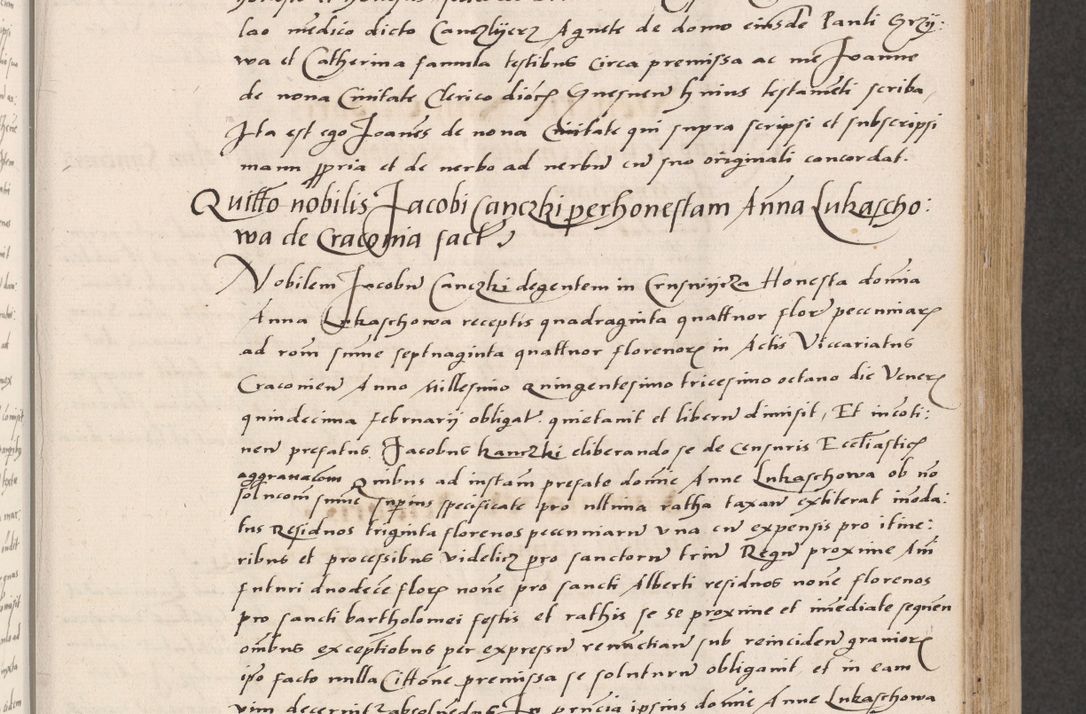 lao medico dicto Canczlyerz Agnete de domo eiusde Pauli Grzy:
wa et Catherina famula testibus circa premissa ac me Joanne
de nona Civitate Clerico dioc Gnesnen huius testameti scriba,
Ita est ego Joanes de nona Civitate qui supra scripsi et subscripsi
manu ppria et de verbo ad verbu cu suo originali concordat.
Quitto nobilis Jacobi Canczki per honestam Anna Lukascho:
wa de Craconia fact
Nobilem Jacobu Canczki degentem in honesta domia
Anna Lukaschowa receptis quadraginta quattuor flor pecuniar
ad rom sume septuaginta quattuor florenor in Actis Vicariatus
Cracovien Anno Millesimo quingentesimo tricesimo octavo die Vener
quindecima februarij obligat quietavit et liberu dimisit, Et incoti:
nen prefatus Jacobus kanczki eliberando se de Censuris Ecclesiastic
aggravacom Quibus ad instam prefate domie Anne Lukaschowa ob no
solucom sume supius specificate pro ultima ratha taxau extiterat inoda:
tus Residuos triginta florenos pecuniaru una cu expensis pro itine:
ribus et processibus videlicz pro sanctoru triu Regu proxime Am
futuri duodece flor none pro sancti Alberti residuos none florenos
pro sancti bartholomei festis et rathis se se proxime et imediate sequen
omibus exceptiobus per expressu renuctian sub reinciden gravior
ipo facto nulla Cittone premissa se soluturu obligavit, et in eam
vim decernit absolvedus In pncia ipsius domie Anne Lukaschowa